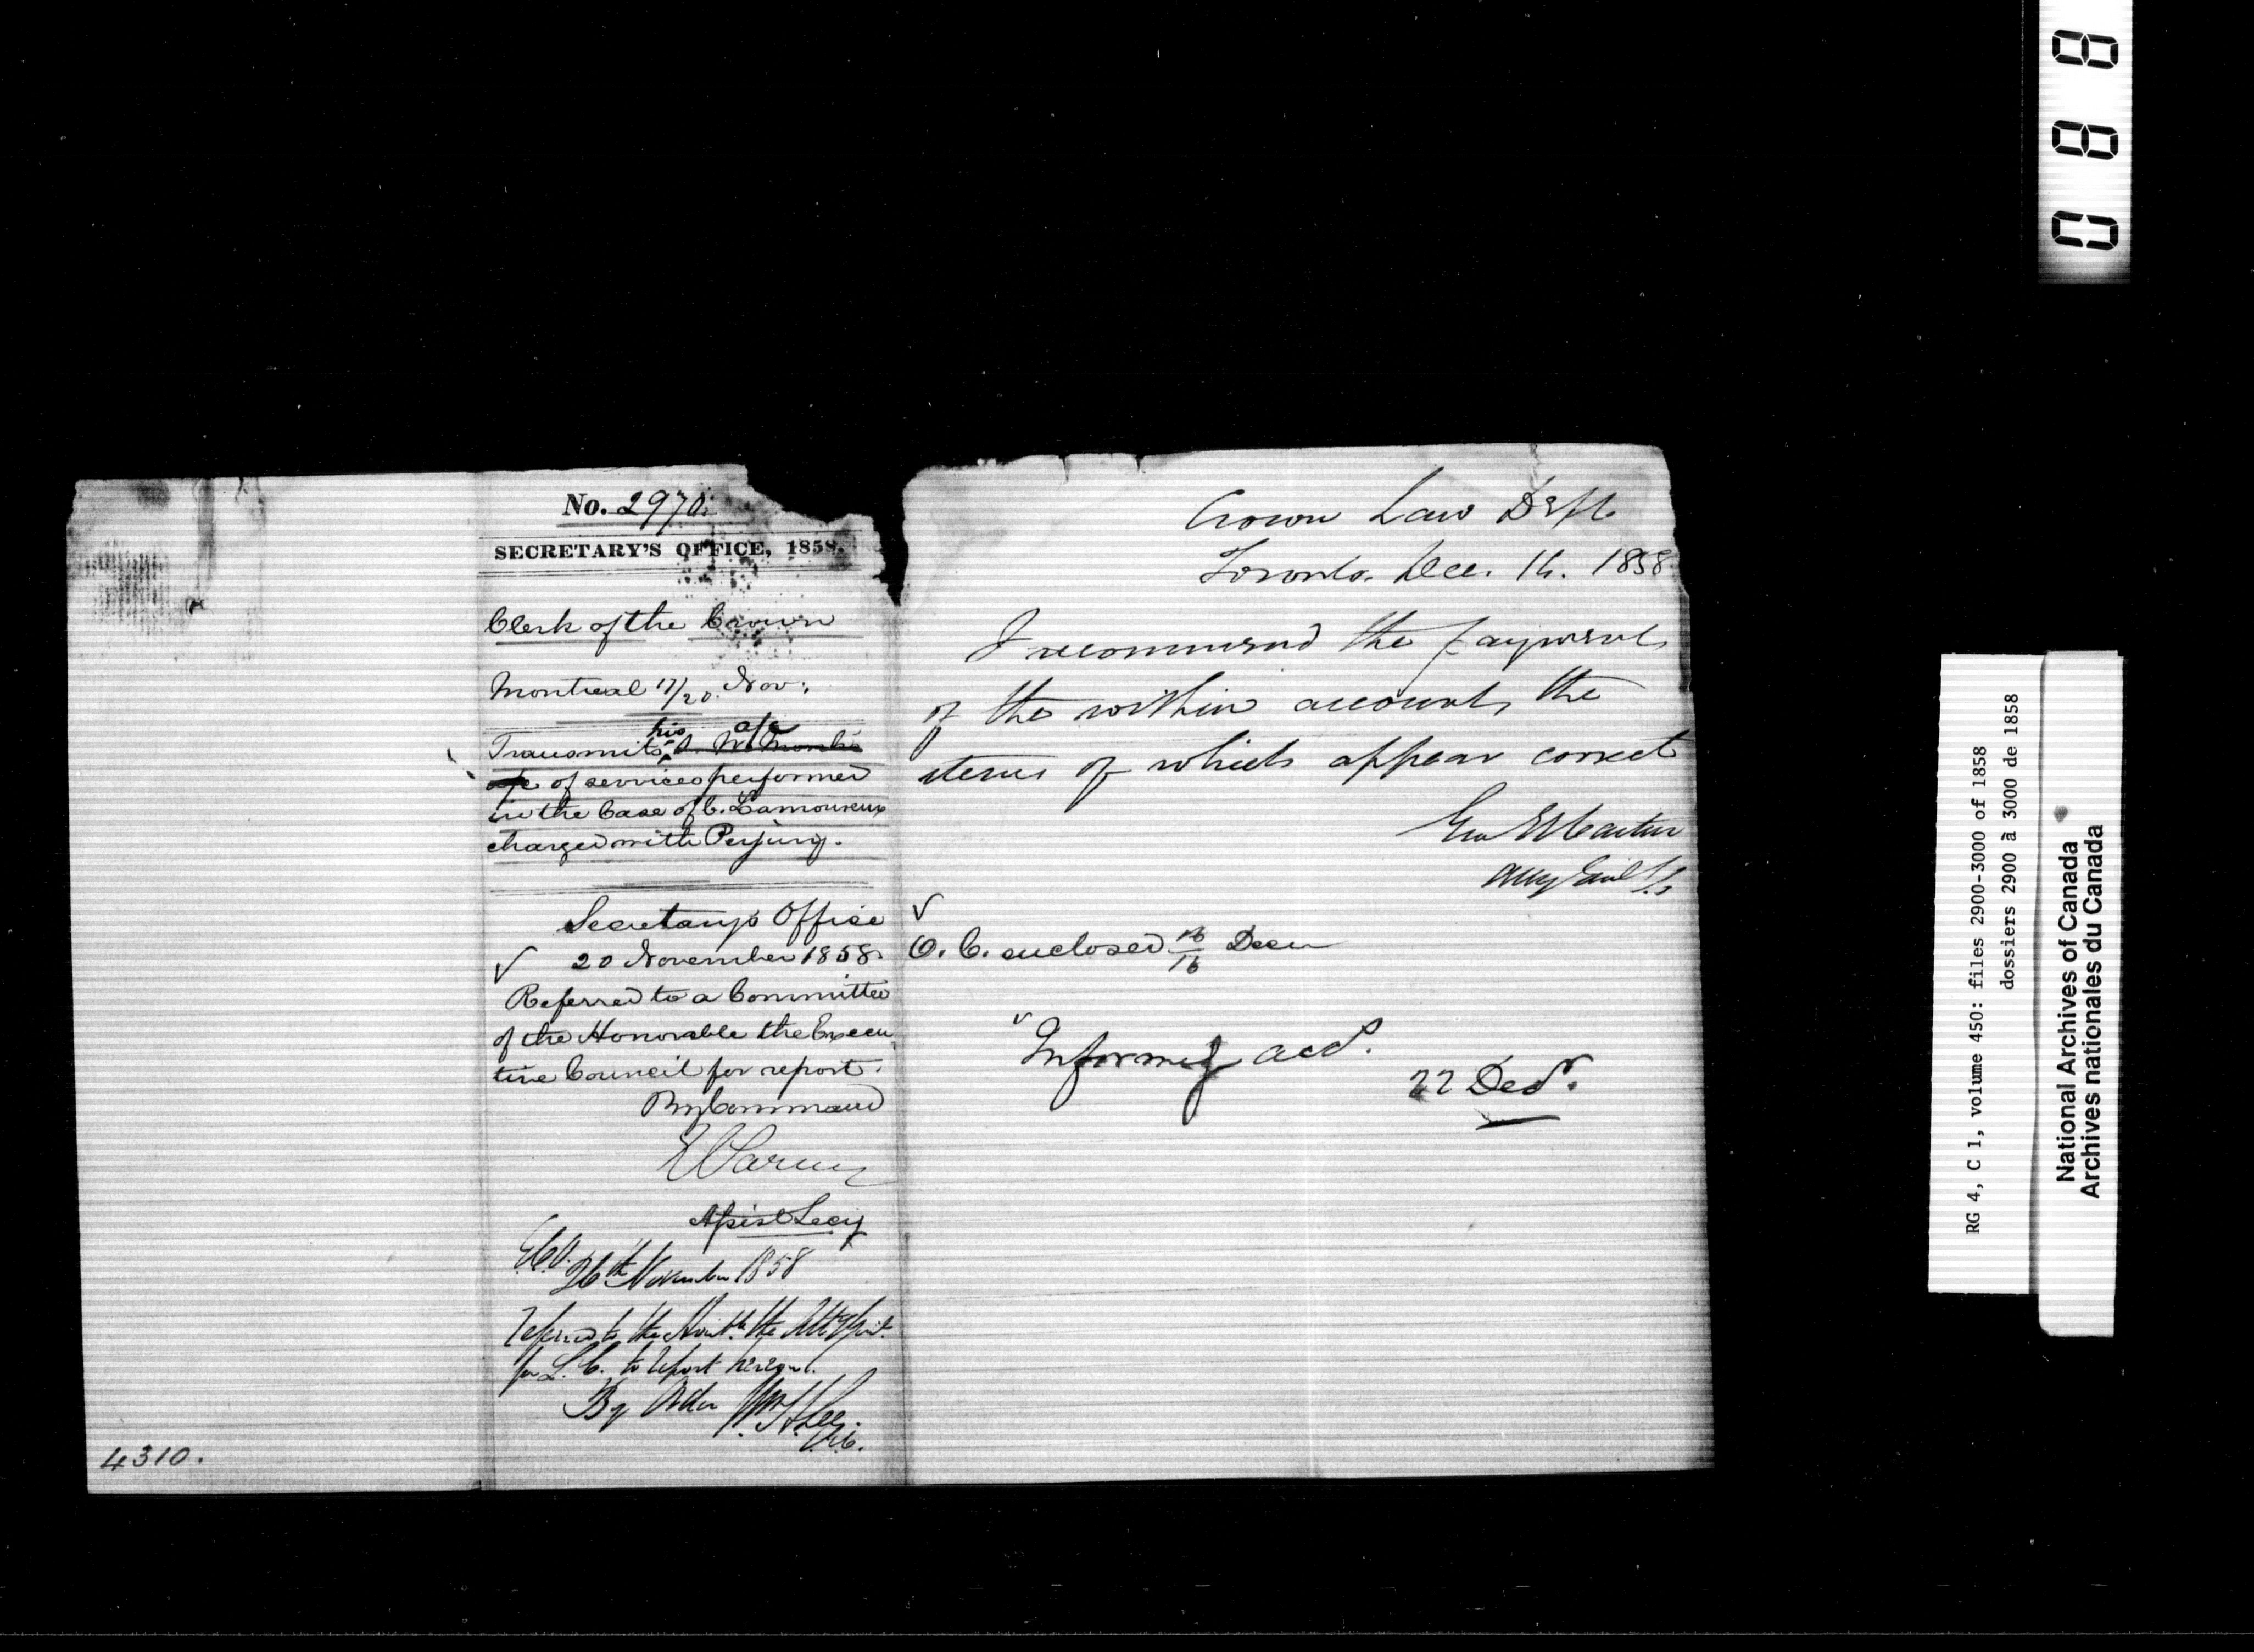 No. 2970.
SECRETARY'S OFFICE, 1858.
Clerk of the Crown
Montreal 17/20. Nov:
his a/c
Transmits
a/c of services performed
in the Case of C. Lamoureux
charged with Perjury.
Secretary's Office
20 November 1858.
Referred to a Committee
of the Honorable the Execu
tive Council for report.
By Command
E Parent
Assist Secy
E.C.O.
26th November 1858
Referred to the Honble. the Atty Genl.
for L.C. to report hereon.
By Order Wm. H. Lee
4310.
Crown Law Dept
Toronto, Dec. 16. 1858.
I recommend the payment
of the within account, the
items of which appear correct
Geo E Cartier
Atty Genl L.C.
O. C. enclosed 16/16 Decr
Informed accd.
22 Decr.
088
RG 4, C 1, volume 450: files 2900-3000 of 1858
dossiers 2900 à 3000 de 1858
National Archives of Canada
Archives nationales du Canada